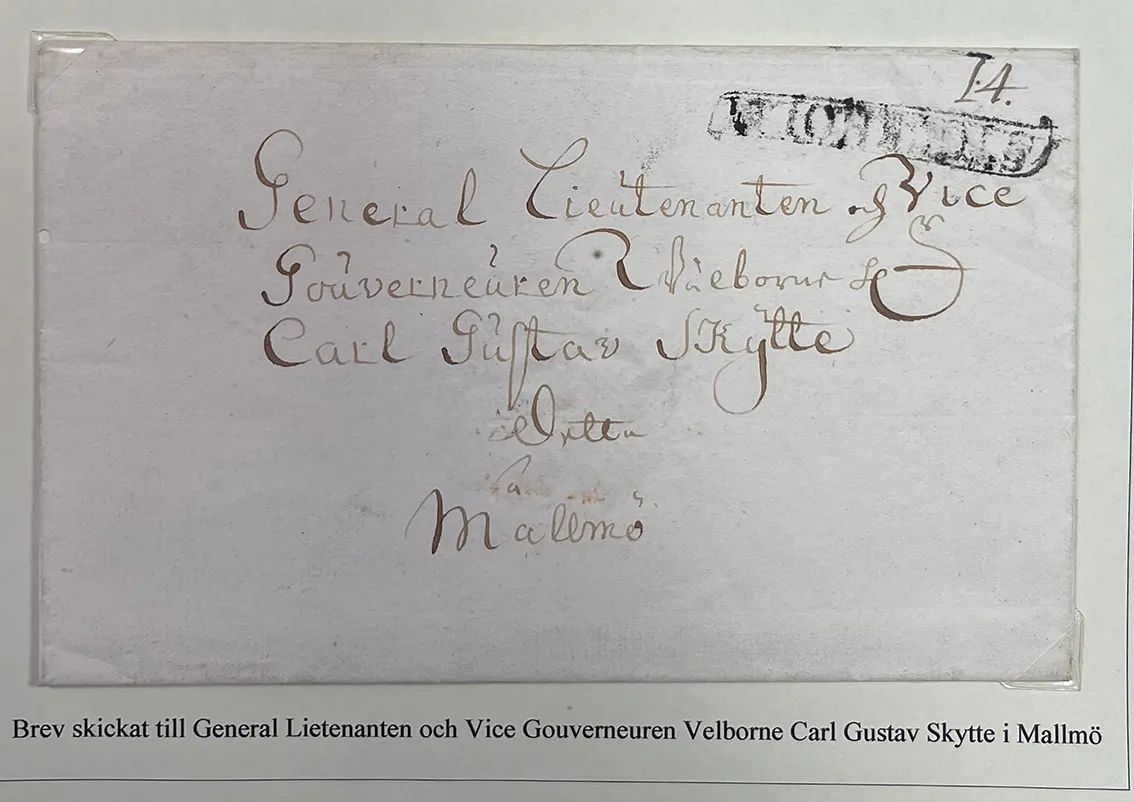 14.
General Lieutenanten og Vice
Gouverneuren
Carl Gustav Skytte
Mallmö
Brev skickat till General Lietenanten och Vice Gouverneuren Velborne Carl Gustav Skytte i Mallmö